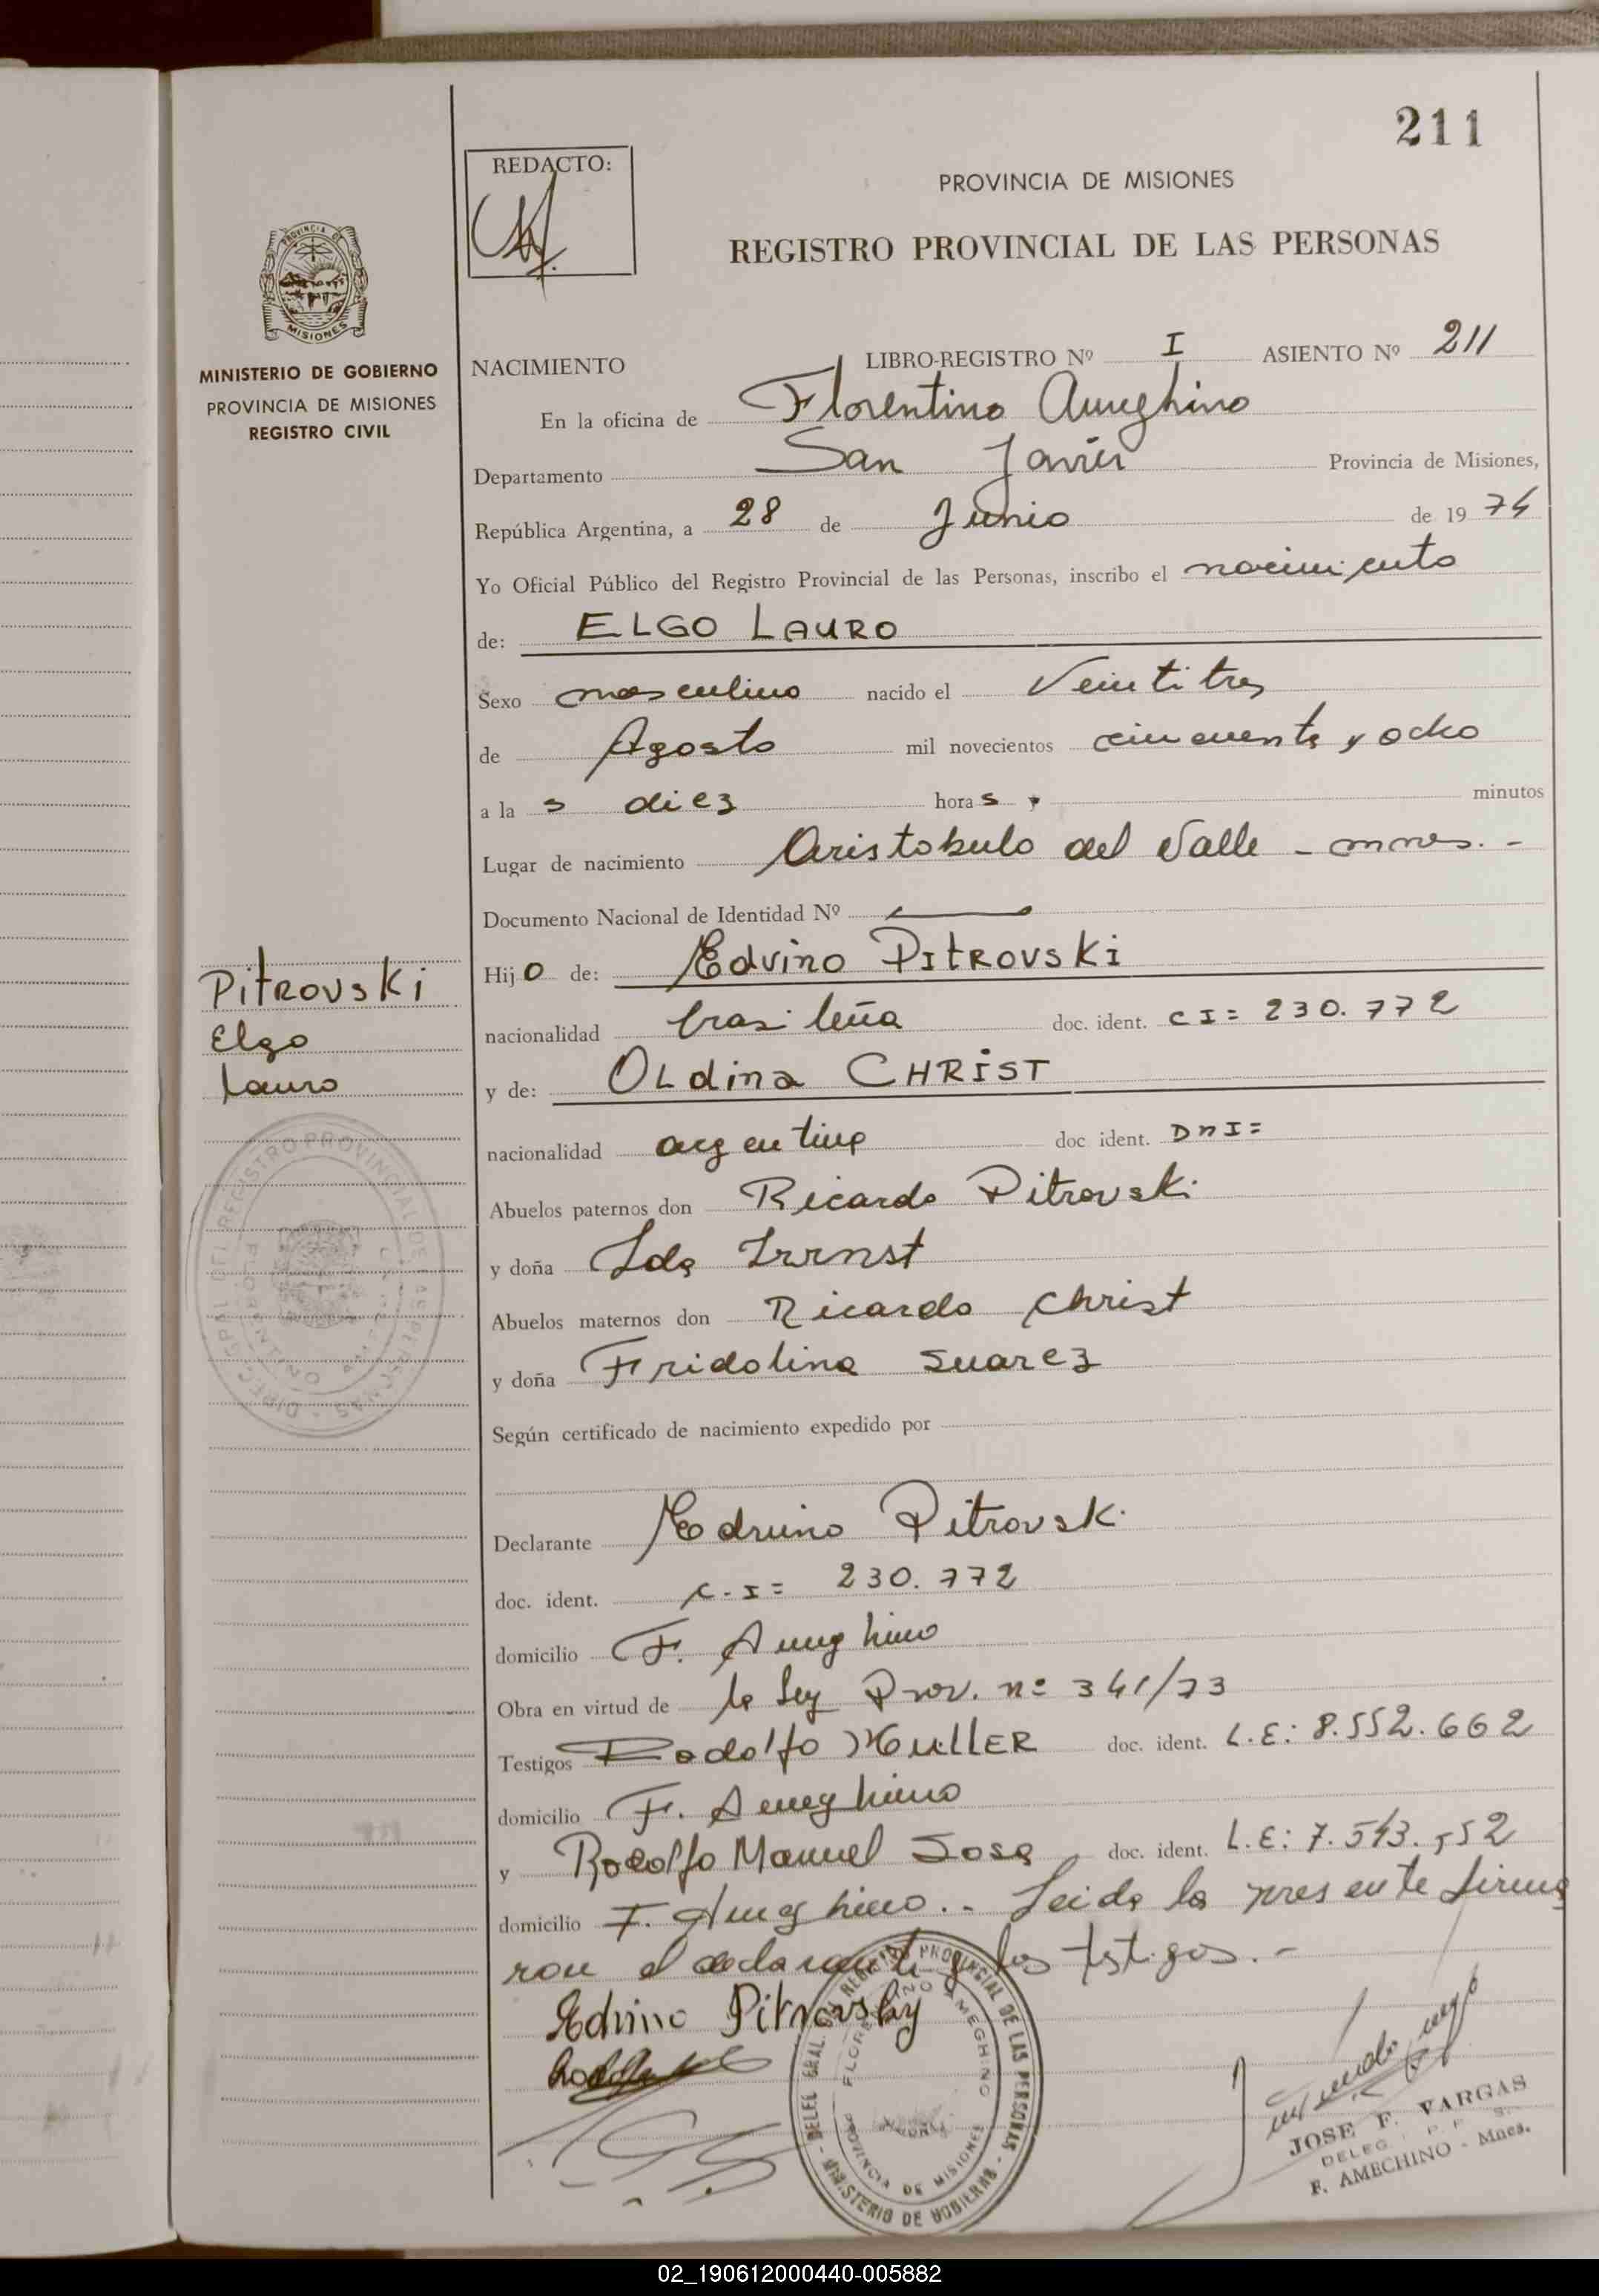 211
REDACTO:
PROVINCIA DE MISIONES
REGISTRO PROVINCIAL DE LAS PERSONAS
PROVINCIA DE
MISIONES
MINISTERIO DE GOBIERNO
PROVINCIA DE MISIONES
REGISTRO CIVIL
NACIMIENTO LIBRO-REGISTRO Nº I ASIENTO Nº 211
En la oficina de Florentino Ameghino
Departamento San Javier Provincia de Misiones,
República Argentina, a 28 de Junio de 1974
Yo Oficial Público del Registro Provincial de las Personas, inscribo el nacimiento
de: ELGO LAURO
Sexo masculino nacido el Veintitres
de Agosto mil novecientos cincuenta y ocho
a la s diez hora s y minutos
Lugar de nacimiento Aristobulo del Valle - mnes. -
Documento Nacional de Identidad Nº
Hijo de: Edvino PITROVSKI
nacionalidad brasileña doc. ident. CI= 230.772
y de: OLdina CHRIST
nacionalidad argentina doc ident. DNI=
Abuelos paternos don Ricardo Pitrovski
y doña Ida
Abuelos maternos don Ricardo Christ
y doña Fridolina Suarez
Según certificado de nacimiento expedido por
Declarante Edvino Pitrovski
doc. ident. C.I= 230.772
domicilio F. Ameghino
Obra en virtud de la Ley Prov. nº 341/73
Testigos Rodolfo MULLER doc. ident. L.E: 8.552.662
domicilio F. Ameghino
y Rodolfo Manuel Sosa doc. ident. L.E: 7.543.552
domicilio F. Ameghino.. Leida la presente firma
ron el declarante y los testigos.-
Edvino Pitrovsky
Pitrovski
Elgo
Lauro
DELEG. GRAL. DEL REGISTRO PROVINCIAL DE LAS PERSONAS - MINISTERIO DE GOBIERNO
FLORENTINO AMEGHINO
PROVINCIA DE MISIONES
JOSE F. VARGAS
DELEG. P. P. S.
F. AMECHINO - Mnes.
02_190612000440-005882